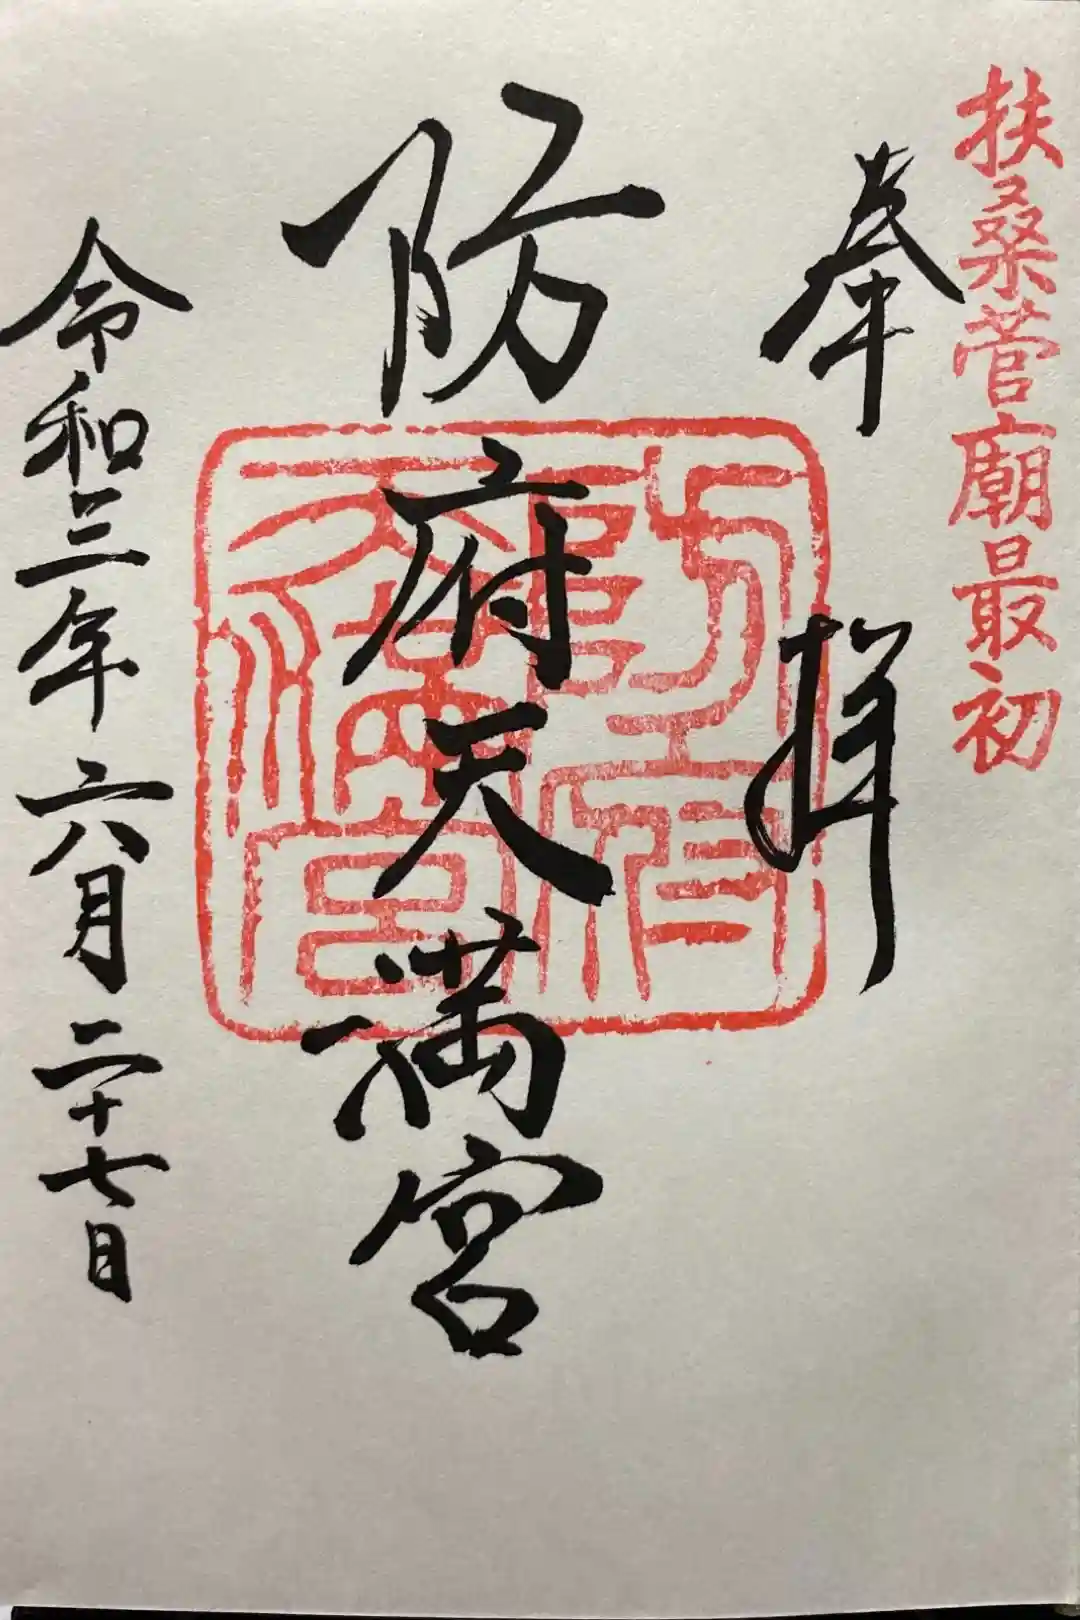 扶桑菅廟最初
奉拝
防府天満宮
防府天満宮
令和三年六月二十七日